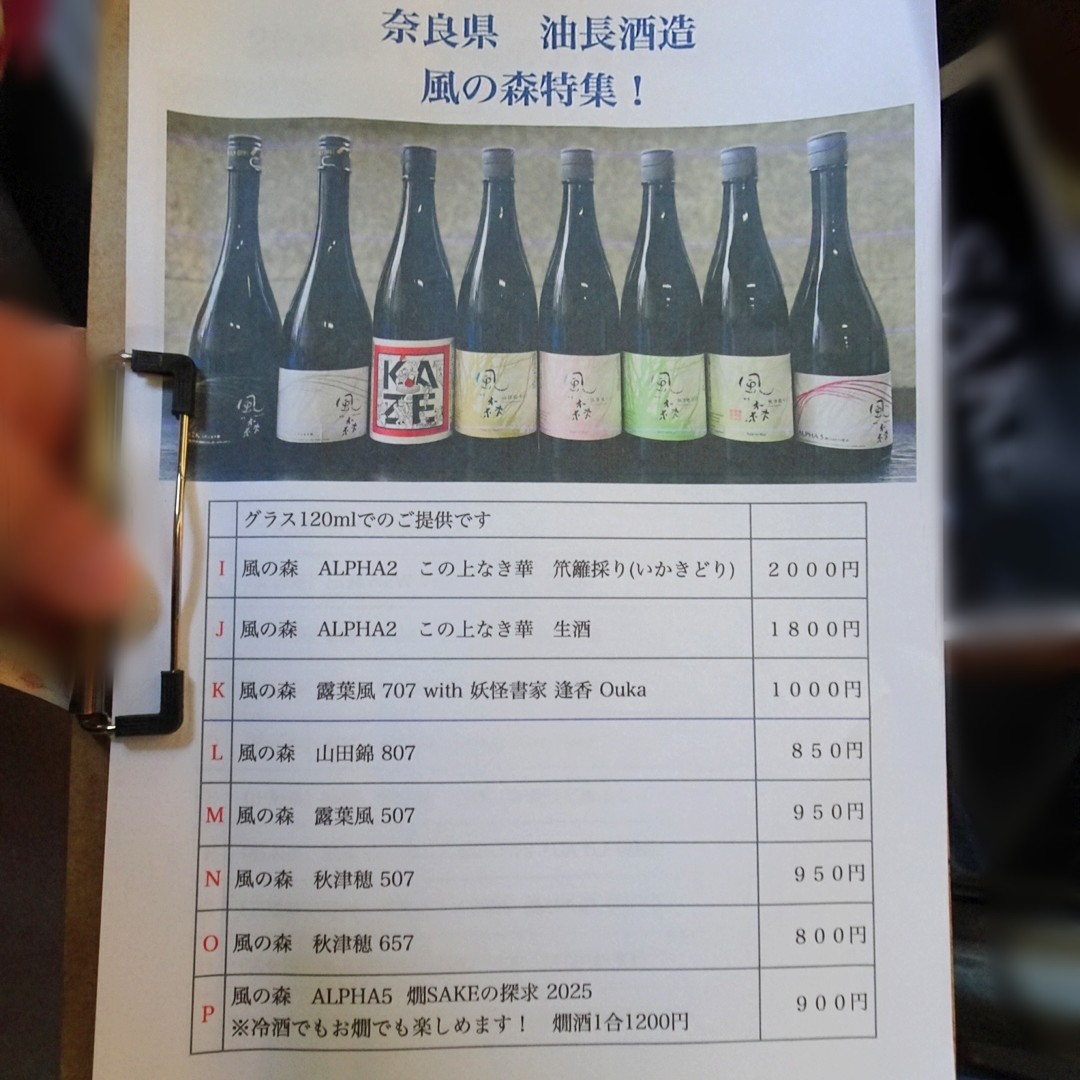 奈良県　油長酒造
風の森特集！
風の森
風の森
KAZE
風の森
風の森
風の森
風の森
ALPHA 5
風の森
グラス120mlでのご提供です
I 風の森　ALPHA2　この上なき華　笊籬採り(いかきどり) ２０００円
J 風の森　ALPHA2　この上なき華　生酒 １８００円
K 風の森　露葉風 707 with 妖怪書家 逢香 Ouka １０００円
L 風の森　山田錦 807 ８５０円
M 風の森　露葉風 507 ９５０円
N 風の森　秋津穂 507 ９５０円
O 風の森　秋津穂 657 ８００円
P 風の森　ALPHA5　燗SAKEの探求 2025 ９００円
※冷酒でもお燗でも楽しめます！　燗酒1合1200円